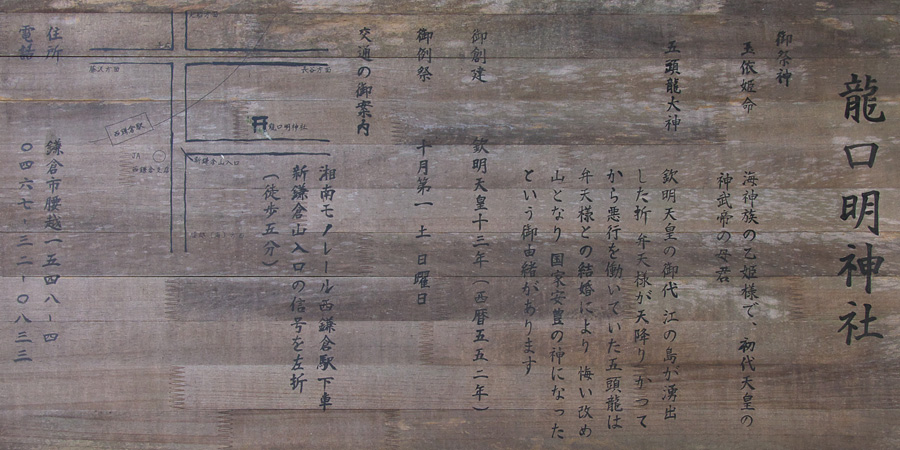 龍口明神社
御祭神
玉依姫命
海神族の乙姫様で、初代天皇の
神武帝の母君
五頭龍大神
欽明天皇の御代 江の島が湧出
した折 弁天様が天降り かつて
から悪行を働いていた五頭龍は
弁天様との結婚により 悔い改め
山となり 国家安豊の神になった
という御由緒があります
御創建
欽明天皇十三年(西暦五五二年)
御例祭
十月第一 土 日曜日
交通の御案内
湘南モノレール西鎌倉駅下車
新鎌倉山入口の信号を左折
(徒歩五分)
藤沢方面
長谷方面
龍口明神社
西鎌倉駅
JA
西鎌倉支店
新鎌倉山入口
住所
鎌倉市腰越一五四八-四
電話
〇四六七-三二-〇八三三